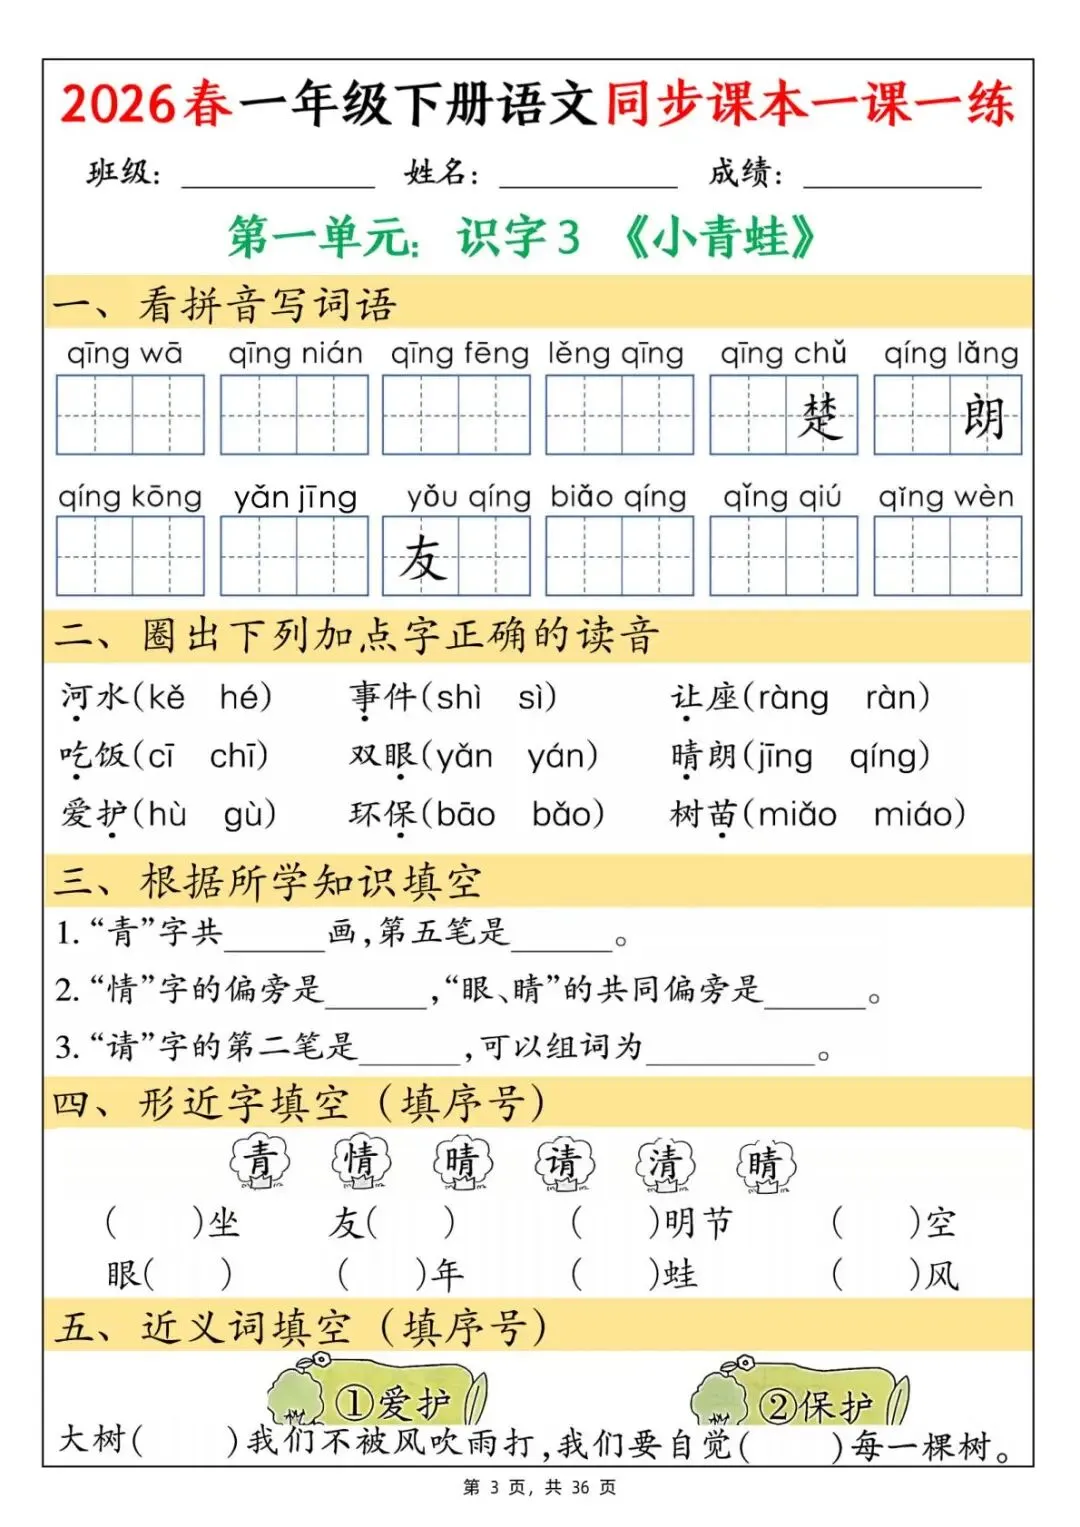 2026春一年级下册语文同步课本一课一练
班级：__________ 姓名：__________ 成绩：__________
第一单元：识字3 《小青蛙》
一、看拼音写词语
qīng wā qīng nián qīng fēng lěng qīng qīng chǔ qíng lǎng
楚 朗
qíng kōng yǎn jīng yǒu qíng biǎo qíng qǐng qiú qǐng wèn
友
二、圈出下列加点字正确的读音
河水(kě hé) 事件(shì sì) 让座(ràng ràn)
吃饭(cī chī) 双眼(yǎn yán) 晴朗(jīng qíng)
爱护(hù gù) 环保(bāo bǎo) 树苗(miǎo miáo)
三、根据所学知识填空
1. “青”字共______画,第五笔是______。
2. “情”字的偏旁是______,“眼、睛”的共同偏旁是______。
3. “请”字的第二笔是______,可以组词为__________。
四、形近字填空（填序号）
青 情 晴 请 清 睛
( )坐 友( ) ( )明节 ( )空
眼( ) ( )年 ( )蛙 ( )风
五、近义词填空（填序号）
①爱护 ②保护
大树( )我们不被风吹雨打,我们要自觉( )每一棵树。
第 3 页，共 36 页